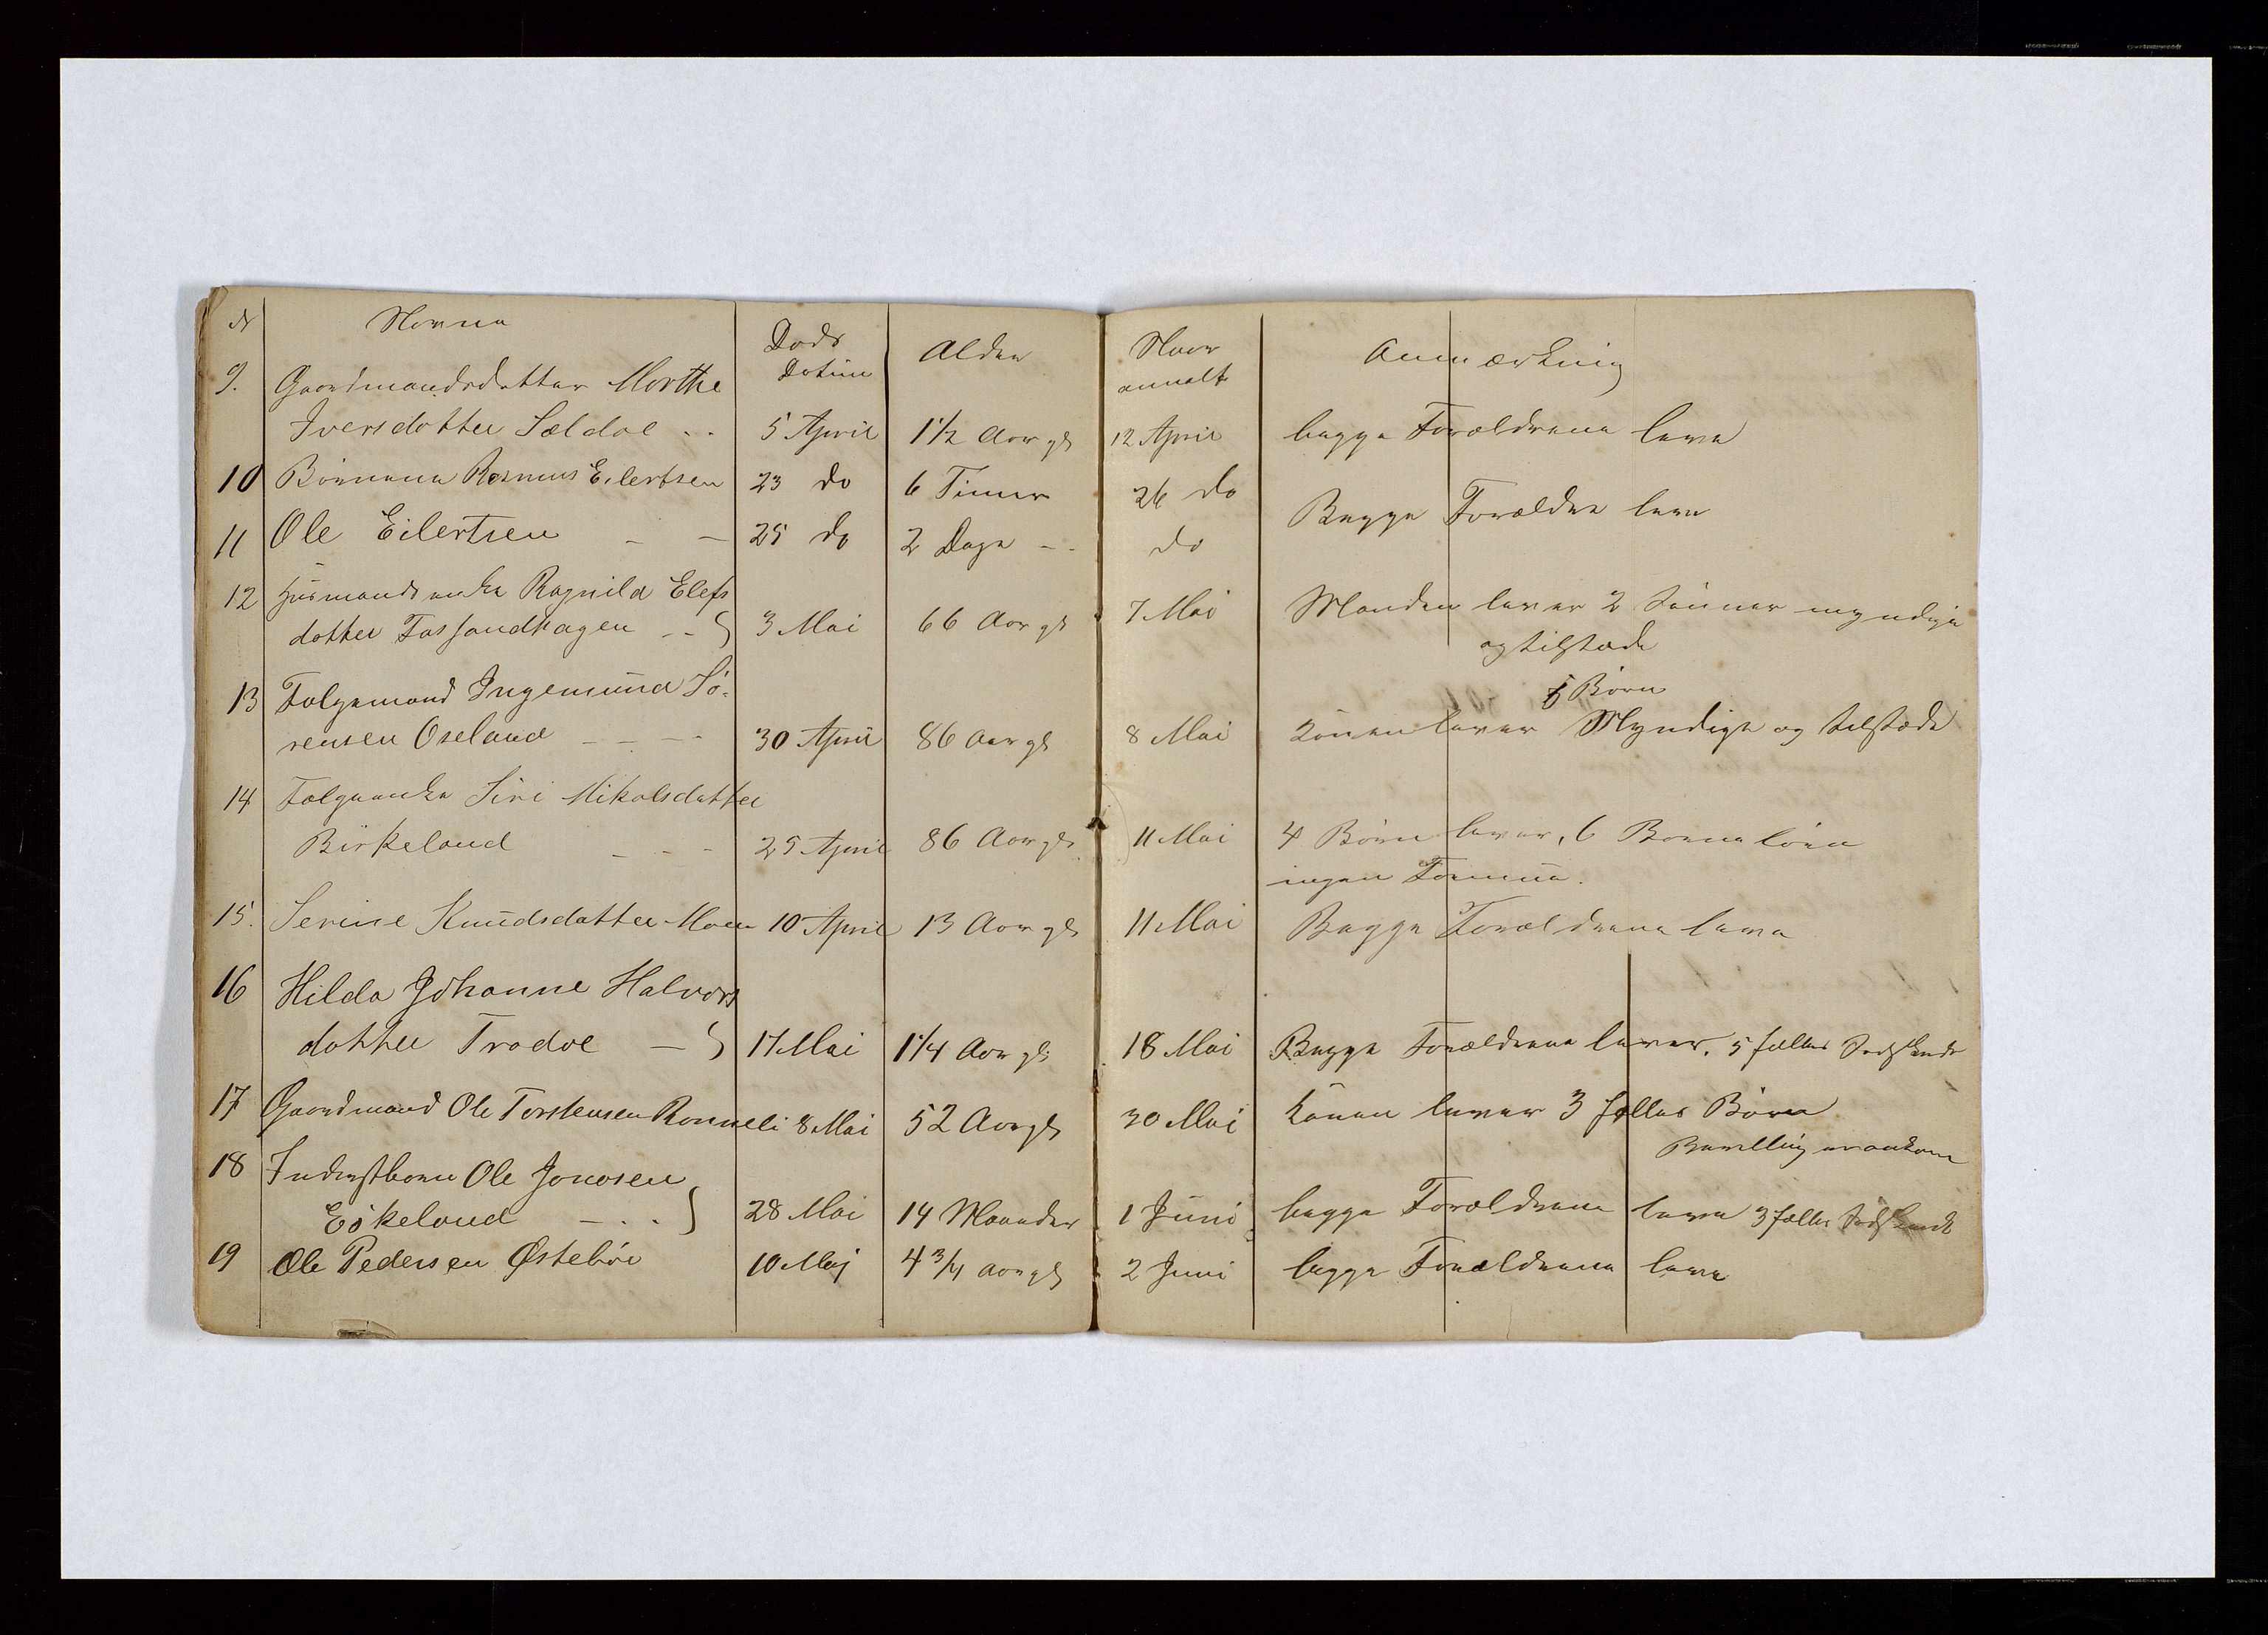 N Navne Døds Datum Alder Naar anmelt Anmærkning
9. Gaardmandsdatter Marthe
Iversdatter Sældal .. 5 April 1 1/2 Aar gl 12 April begge Forældrene leve
10 Børnene Rasmus Eilertsen 23 do 6 Timer 26 do Begge Forældre leve
11 Ole Eilertsen – – 25 do 2 Dage -- do
12 Husmandsenke Ragnild Elefs
datter Fossandhagen -- 3 Mai 66 Aar gl 7 Mai Manden lever 2 Sønner myndige
og tilstæde
13 Folgemand Ingemund Sø-
rensen Oseland ---- 30 April 86 Aar gl 8 Mai Konen lever 5 Børn Myndige og tilstæde
14 Folgeenke Siri Mikalsdatter
Birkeland --- 25 April 86 Aar gl 11 Mai 4 Børn lever, 6 Børnebørn
ingen Formue.
15. Serine Knudsdatter Moen 10 April 13 Aar gl 11 Mai Begge Forældrene leve
16 Hilda Johanne Halvors
datter Tradal – 17 Mai 1 1/4 Aar gl 18 Mai Begge Forældrene lever, 5 fælles Sødskende
17 Gaardmand Ole Torstensen Ronneli 8 Mai 52 Aar gl 30 Mai Konen lever 3 fælles Børn
Bevilling
18 Inderstbarn Ole Jonasen
Eikeland –.. 28 Mai 14 Maaneder 1 Juni begge Forældrene leve 3 fælles Sødskende
19 Ole Pedersen Østebøe 10 Maj 4 3/4 Aar gl 2 Juni begge Forældrene leve